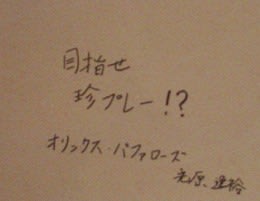 目指せ
珍プレー!?
オリックス・バファローズ
光原逸裕